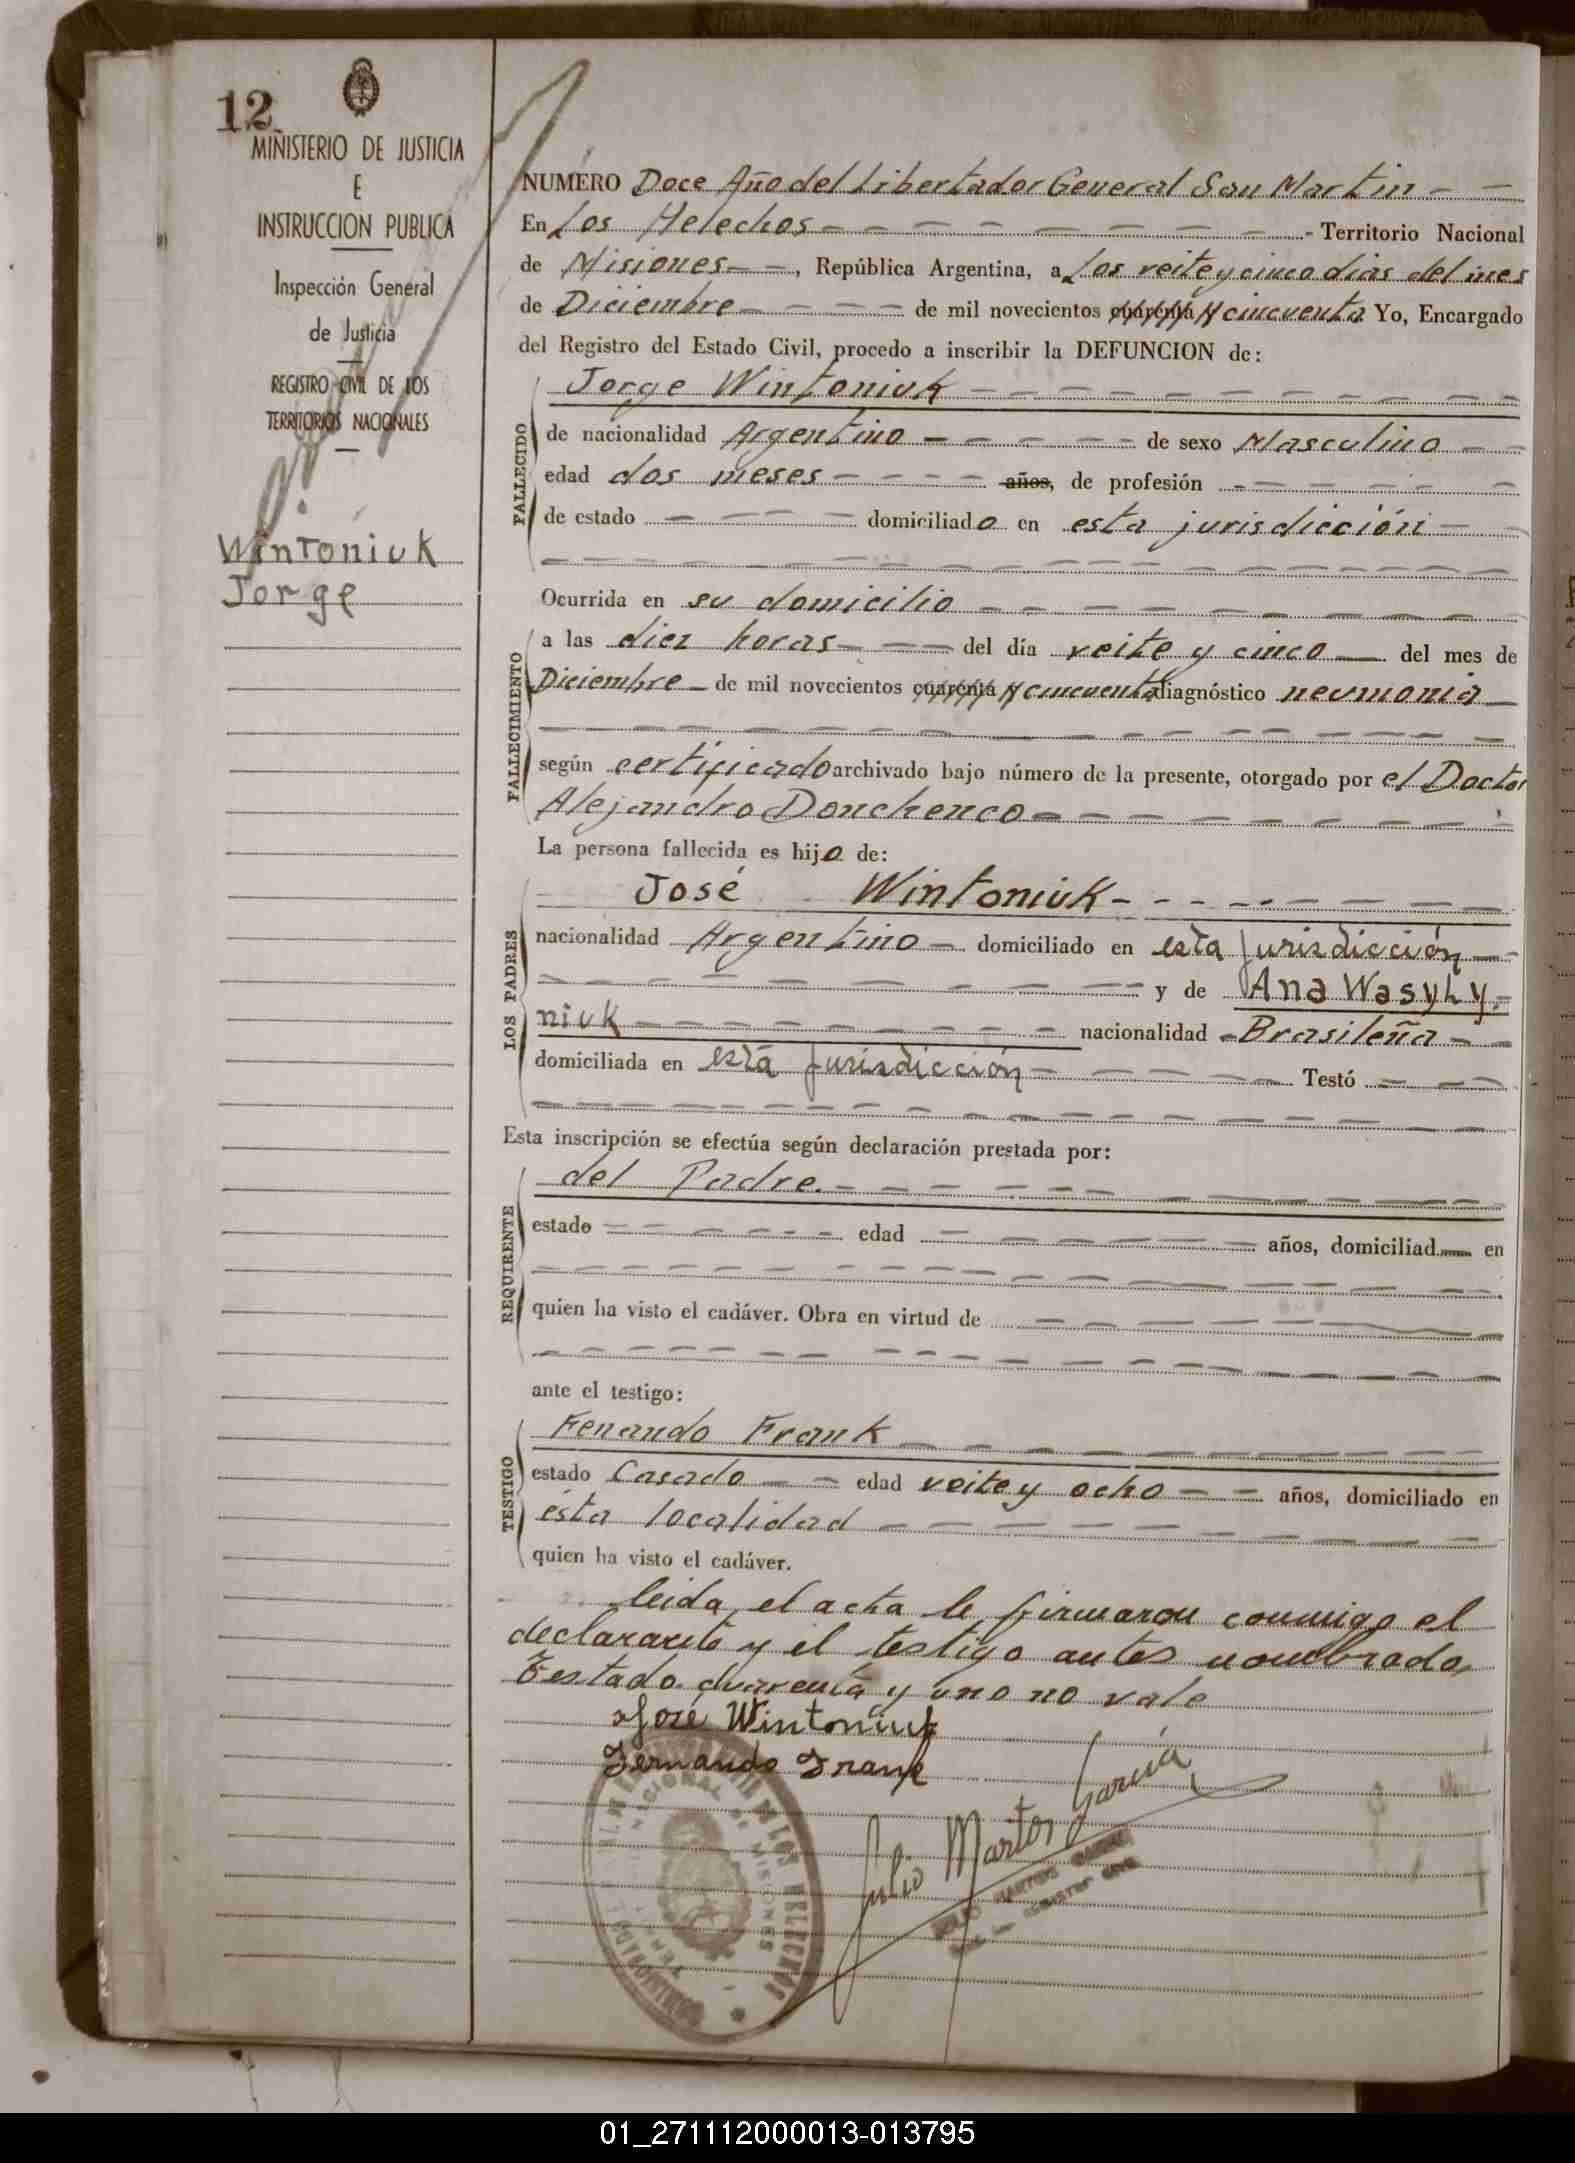 12
MINISTERIO DE JUSTICIA
E
INSTRUCCION PUBLICA
Inspección General
de Justicia
REGISTRO CIVIL DE LOS
TERRITORIOS NACIONALES
Wintoniuk
Jorge
NUMERO Doce Año del Libertador General San Martin
En Los Helechos Territorio Nacional
de Misiones, República Argentina, a los veite y cinco dias del mes
de Diciembre de mil novecientos cuarenta y cincuenta Yo, Encargado
del Registro del Estado Civil, procedo a inscribir la DEFUNCION de:
FALLECIDO
Jorge Wintoniuk
de nacionalidad Argentino de sexo Masculino
edad dos meses años, de profesión
de estado domiciliado en esta jurisdicción
Ocurrida en su domicilio
FALLECIMIENTO
a las diez horas del día veite y cinco del mes de
Diciembre de mil novecientos cuarenta y cincuenta diagnóstico neumonia
según certificado archivado bajo número de la presente, otorgado por el Doctor
Alejandro Donchenco
La persona fallecida es hijo de:
LOS PADRES
José Wintoniuk
nacionalidad Argentino domiciliado en esta jurisdicción
y de Ana Wasyly-
niuk nacionalidad Brasileña
domiciliada en esta jurisdicción Testó
Esta inscripción se efectúa según declaración prestada por:
REQUIRENTE
del Padre.
estado edad años, domiciliad en
quien ha visto el cadáver. Obra en virtud de
ante el testigo:
TESTIGO
Fenando Frank
estado Casado edad veite y ocho años, domiciliado en
ésta localidad
quien ha visto el cadáver.
leida el acta le firmaron conmigo el
declarante y el testigo antes nombrado,
Testado cuarenta y uno no vale
José Wintoniuk
Fernando Frank
Julio Martos García
JULIO MARTOS GARCIA
REGISTRO CIVIL
01_271112000013-013795